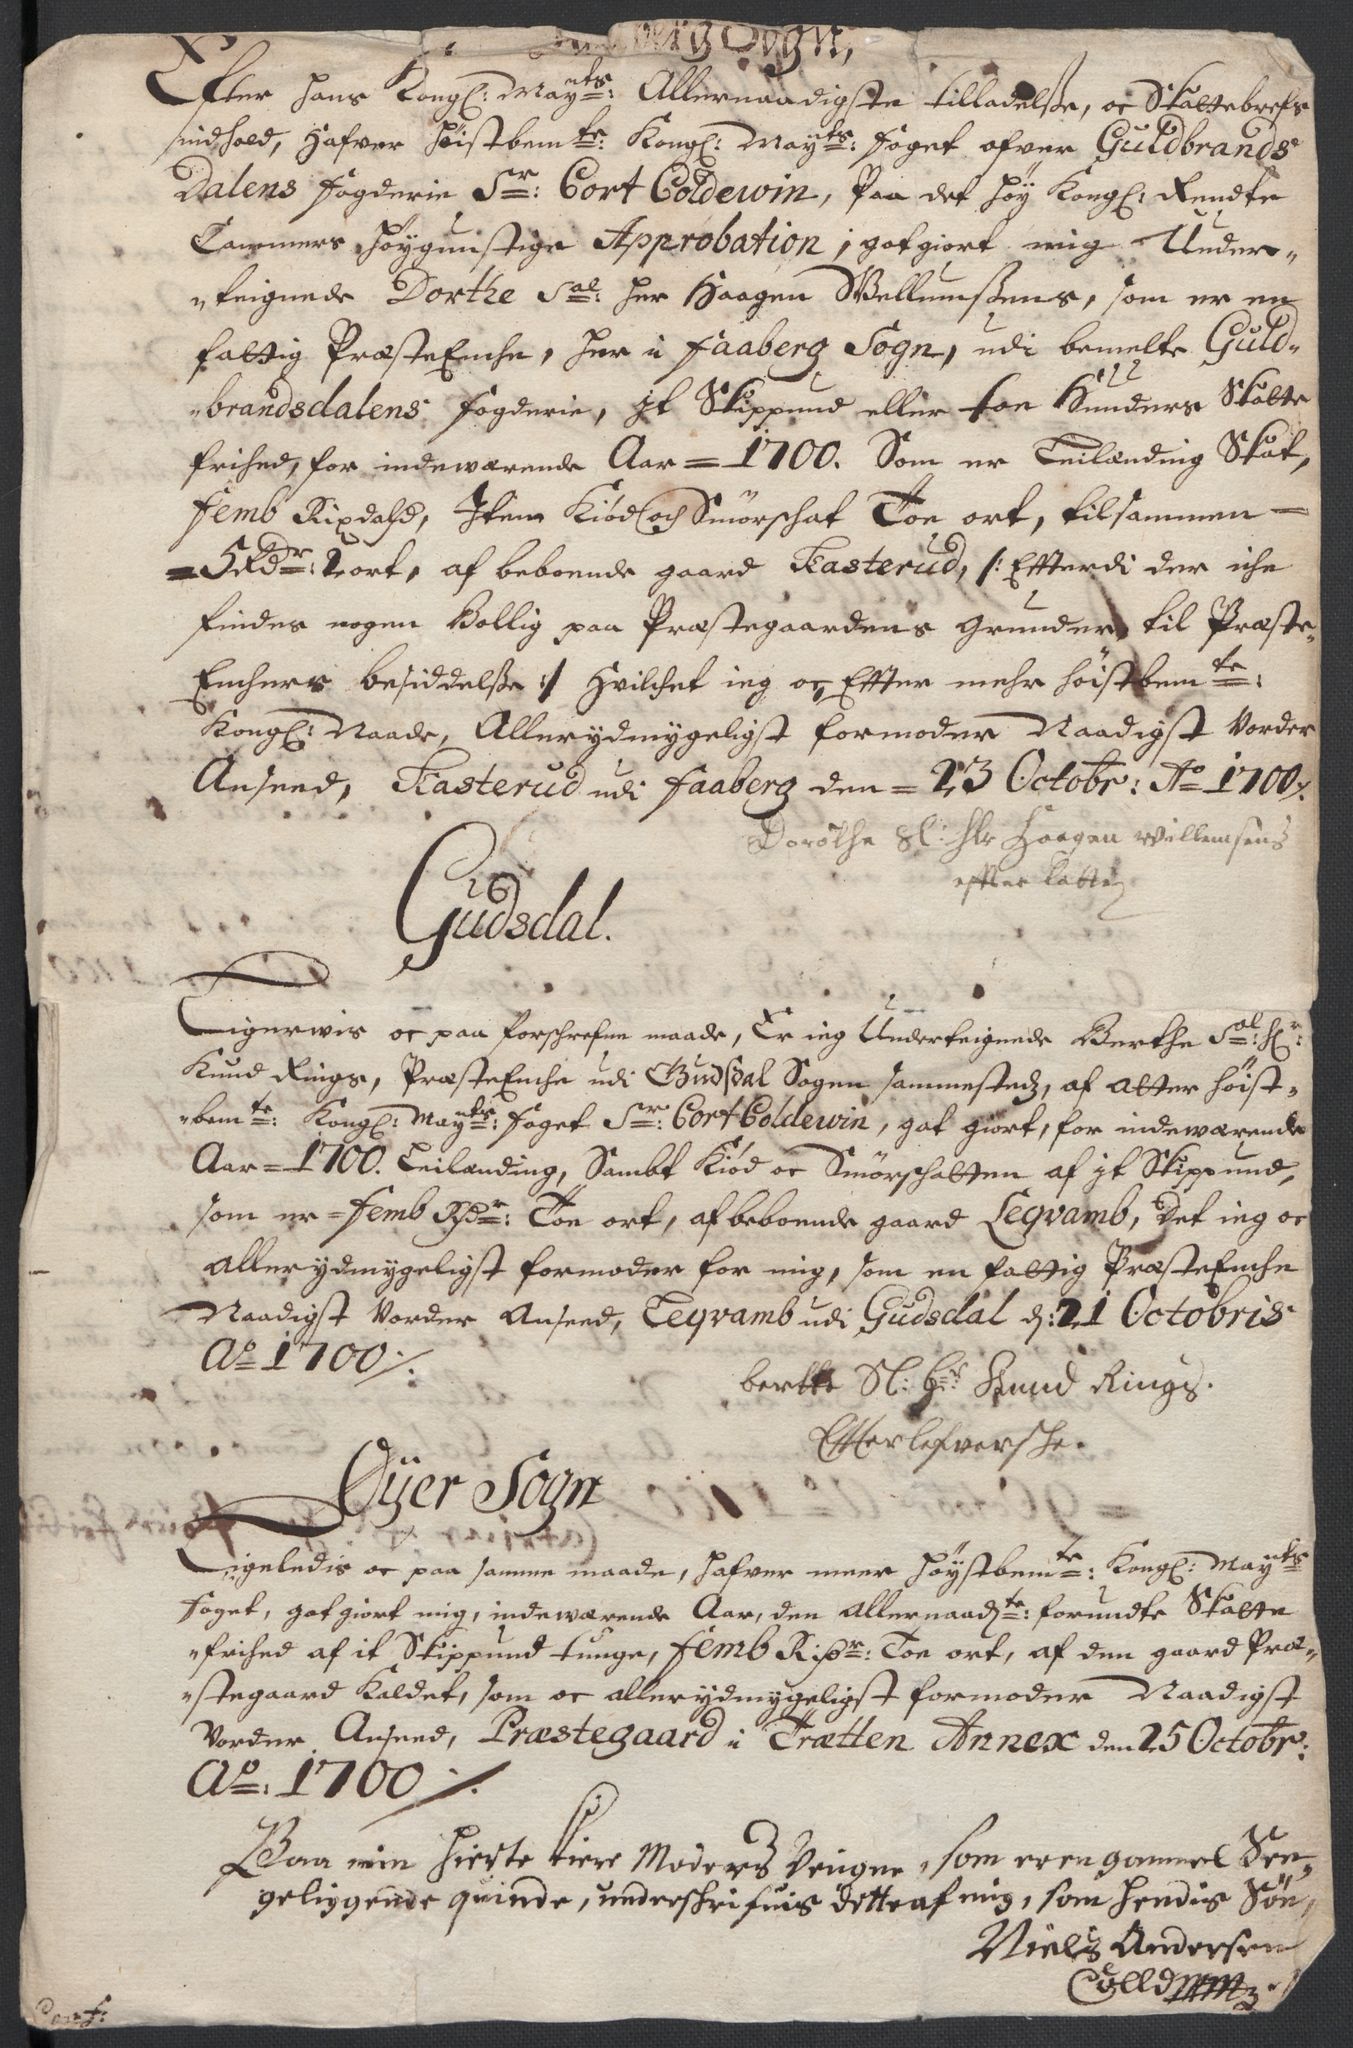 berg Sogn,
Efter hans Kongl: Mayts: Allernaadigste tilladelße, oc Skattebrefs
indhold, Hafver höistbemte: Kongl: Mayts: foget ofver Guldbrands
Dalens fogderie Sr: Cort Coldewin, Paa det höy Kongl: Rendte
Cammers höygunstige Approbation, gotgiort mig Under-
teignede Dorthe Sal: her Haagen Wellumßens, som er en
fattig PræsteEnche, her i Faaberg Sogn, udi bemelte Guld-
brandsdalens fogderie, jt Skippund eller toe Hunders Skatte
frihed, for indewærende Aar = 1700. Som er Leilænding Skat,
femb Rixdahl, Item Kiöd och Smörschat Toe ort, tilsammen =
= 5 Rdr: 2 ort, af beboende gaard Kasterud, /: Effterdi der iche
findes nogen Bollig paa Præstegaardens Grunder, til Præste-
Enchers besiddelße :/ Hvilchet ieg oc Effter mehr höistbemte:
Kongl: Naade, Allerydmygeligst formoder Naadigst Vorder
Anseed, Kasterud udi faaberg den = 23 Octobr: Ao 1700 /.
Dorothe Sl: Hr Haagen Willemsens
effter latte
Gudsdal.
Ligerwis oc paa forschrefne maade, Er ieg Underteignede Berthe Sal: Hr:
Knud Rings, PræsteEnche udi Gudsdal Sogen sammestedz, af atter höist-
bemte: Kongl: Mayts: foget Sr: Cort Coldewin, got giort, for indewærende
Aar = 1700. Leilænding, Sambt Kiöd oc Smörschatten af jt Skippund,
som er = femb Rdr: Toe ort, af beboende gaard Legvamb, Det ieg oc
allerydmygeligst formoder for mig, som en fattig PræsteEnche
Naadigst Vorder Anseed, Legvamb udi Gudsdal d: 21 Octobris
Ao 1700 /.
berthe Sl: Hr: Knud Rings.
Effterlefversche.
Öÿer Sogn
Ligeledis oc paa samme maade, hafver meer höystbemte: Kongl: Mayts
foget, gotgiort mig, indewærende Aar, den allernaadte: forundte Skatte
frihed af it Skippund tunge, femb Rixdr: Toe ort, af den gaard Præ-
stegaard Kaldet, som oc allerydmygeligst formoder Naadigst
Vorder Anseed, Præstegaard i Trætten Annex den 25 Octobr:
Ao: 1700 /.
Paa min hierte kiere Moders Veigne, som er en gammel Sen-
geliggende quinde, underschrifuis dette af mig, som hendis Sön,
Niels Andersen
Colld mmz